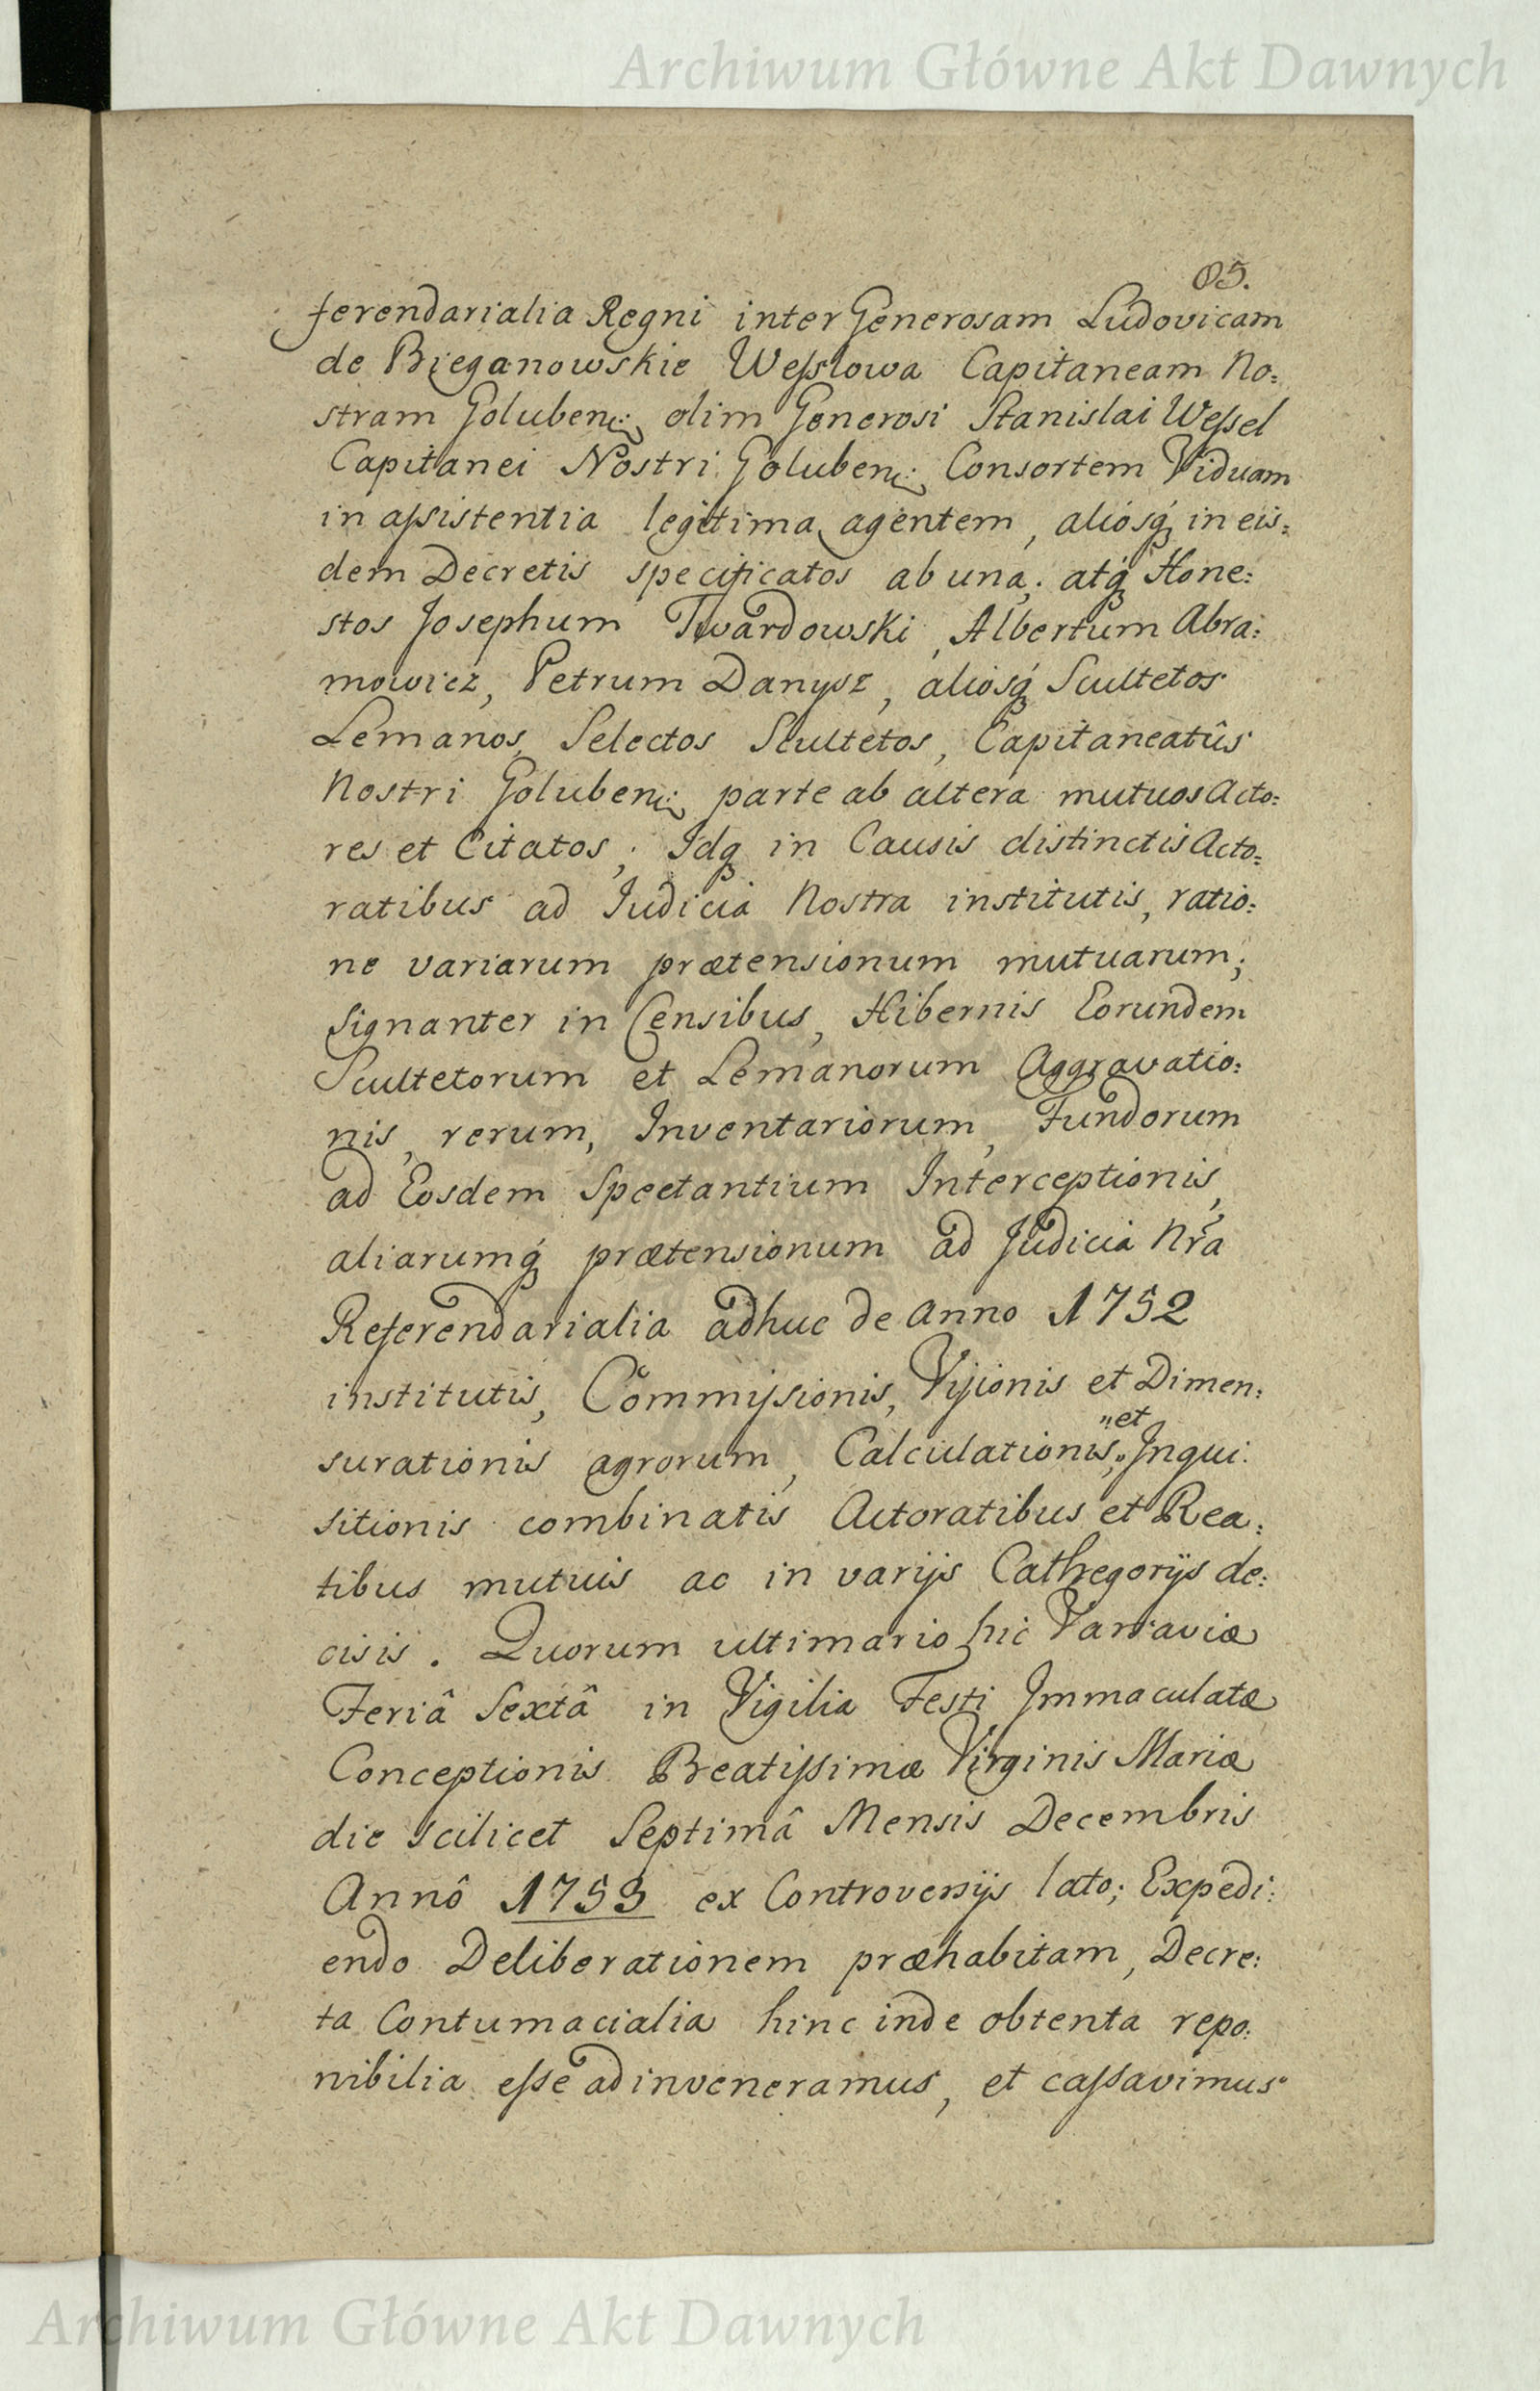 Archiwum Główne Akt Dawnych
85.
ferendarialia Regni inter Generosam Ludovicam
de Bieganowskie Wesslowa Capitaneam No:
stram Goluben: olim Generosi Stanislai Wessel
Capitanei Nostri Goluben: Consortem Viduam
in assistentia legitima agentem, aliosq́ in eis:
dem Decretis specificatos ab una; atq́ Hone:
stos Josephum Twardowski, Albertum Abra:
mowicz, Petrum Danysz, aliosq́ Scultetos
Lemanos, Selectos Scultetos, Capitaneatûs
Nostri Goluben: parte ab altera mutuos Acto:
res et Citatos; Idq in Causis distinctis Acto:
ratibus ad Judicia Nostra institutis, ratio:
ne variarum prætensionum mutuarum;
signanter in Censibus, Hibernis Eorundem
Scultetorum et Lemanorum Aggravatio:
nis, rerum, Inventariorum, Fundorum
ad Eosdem Spectantium Interceptionis,
aliarumq́ prætensionum ad Judicia Nr̃a
Referendarialia adhuc de Anno 1752
institutis, Com̃issionis, Visionis et Dimen:
surationis agrorum, Calculationis, "et Inqui:
sitionis combinatis Actoratibus et Rea:
tibus mutuis ac in varijs Cathegorijs de:
cisis. Quorum ultimario hic Varsaviæ
Feriâ Sextâ in Vigilia Festi Immaculatæ
Conceptionis Beatissimæ Virginis Mariæ
die scilicet Septimâ Mensis Decembris
Annô 1753 ex Controversijs lato; Expedi:
endo Deliberationem præhabitam, Decre:
ta Contumacialia hinc inde obtenta repo:
nibilia esse adinveneramus, et cassavimus
Archiwum Główne Akt Dawnych